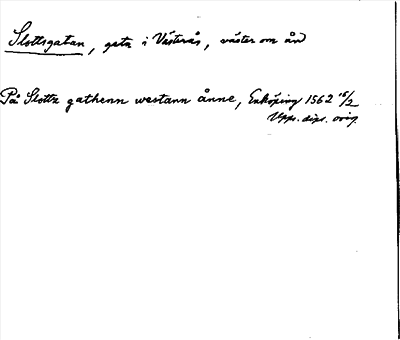 Slottsgatan, gata i Västerås, väster om ån
På Slotts gathenn westann ånne, Enköping 1562 15/2
Upps. dipl. orig.